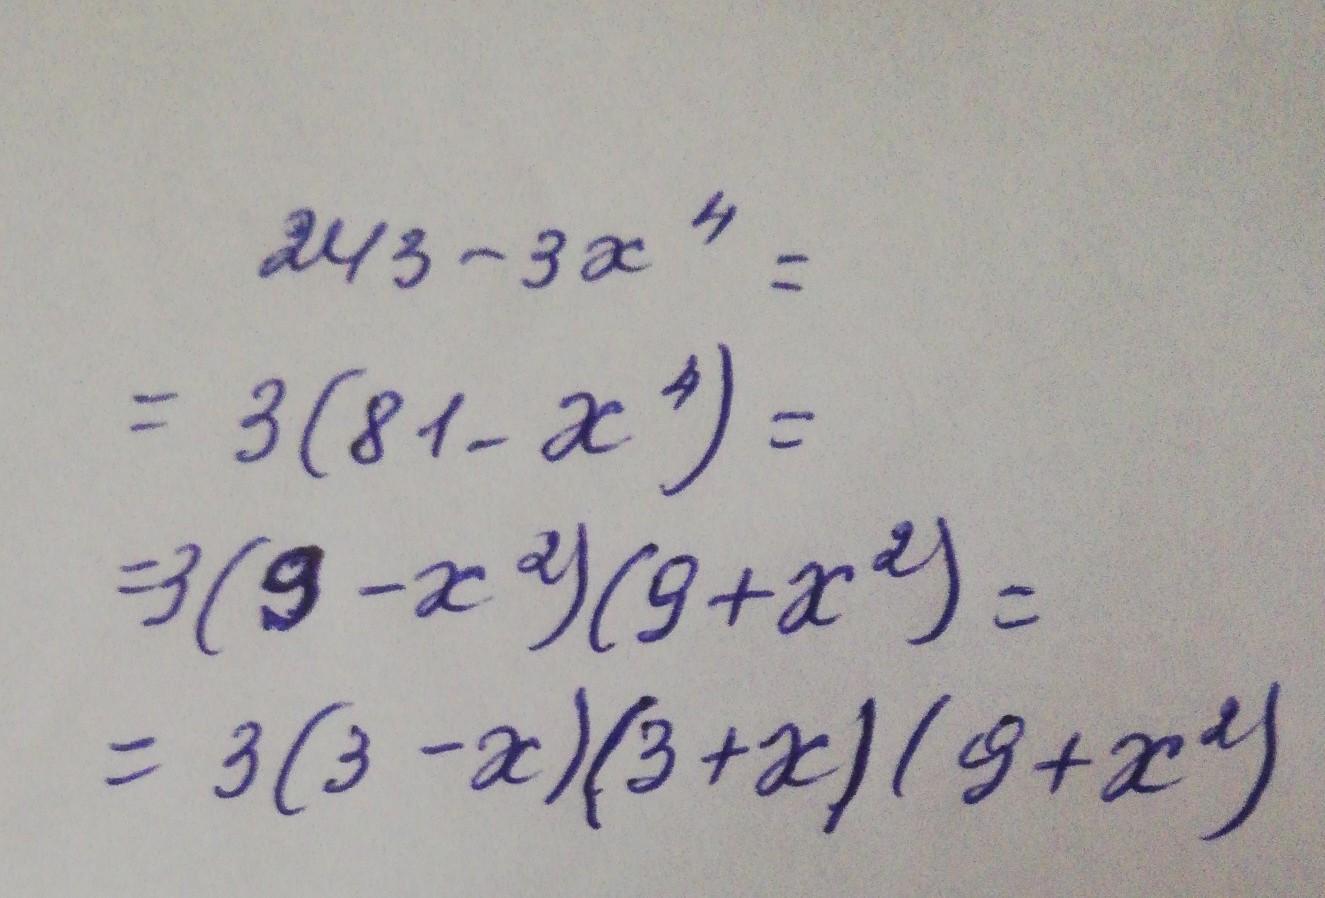 243 - 3x⁴ =
= 3(81 - x⁴) =
= 3(9 - x²)(9 + x²) =
= 3(3 - x)(3 + x)(9 + x²)